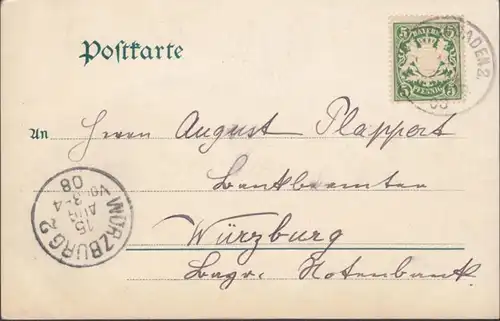 Postkarte
5 BAYERN 5
5 PFENNIG 5
ADEN 2.
An Herrn August Plappert
Bankbeamter
Würzburg
Bayr. Notenbank.
WÜRZBURG 2
15
AUG
VOR 3-4
08